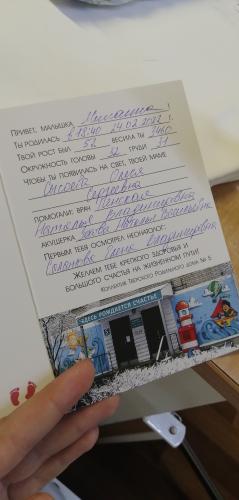 Привет, малышка !
Ты родилась в 18:40 24.02.2022 г.
Твой рост был 56 весила ты 3460
Окружность головы 32 груди 31
Чтобы ты появилась на свет, твоей маме
Ольга
Сергеевна
помогали: врач
Наталья Владимировна
акушерка Наталья Васильевна
Первым тебя осмотрел неонатолог:
Владимировна
Желаем тебе крепкого здоровья и
большого счастья на жизненном пути!
Коллектив Тверского Родильного дома № 5
ЗДЕСЬ РОЖДАЕТСЯ СЧАСТЬЕ